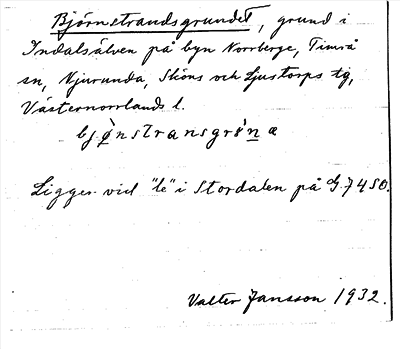 Björnstrandsgrundet, grund i
Indalsälven på byn Norrberge, Timrå
sn, Njurunda, Sköns och Ljustorps tg,
Västernorrlands l.
bjø̀nstransgrn̲æ
Ligger vid "le" i Stordalen på G. 7450.
Valter Jansson 1932.